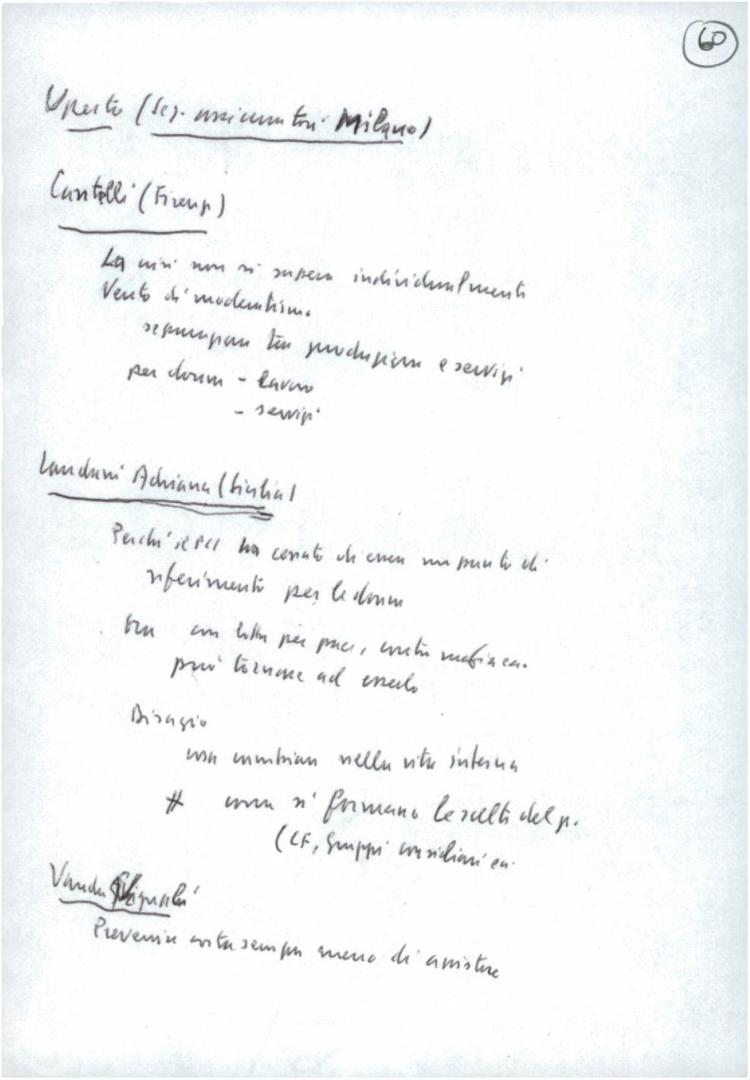 60
(Sez. assicuratori Milano)
Cantelli (Firenze)
La crisi non si supera individualmente
Vento di modernismo
separazione tra produzione e servizi
per donne - lavoro
- servizi
Adriana (Sicilia)
Perché il PCI ha cessato di essere un punto di
riferimento per le donne
Ora con lotta per pace, contro mafia ecc.
può tornare ad esserlo
Disagio
cosa cambiare nella vita interna
# come si formano le scelte del p.
(CF, Gruppi consiliari ecc.
Vanda
Prevenire costa sempre meno di assistere